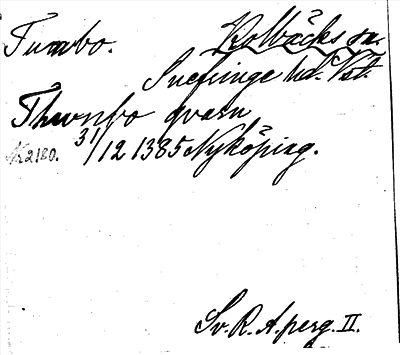 Tumbo. Kolbäcks sn.
Snefringe hd. Vst.
Thumbo qvarn
N 2180. 31/12 1385 Nyköping.
Sv. R. A. perg. II.